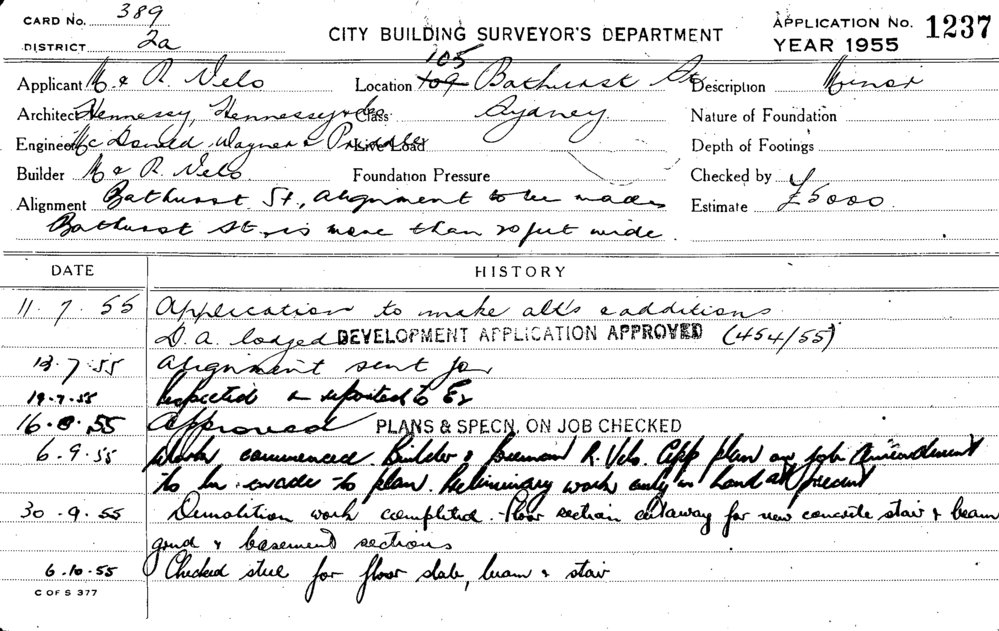 CARD No. 389
DISTRICT 2a
CITY BUILDING SURVEYOR'S DEPARTMENT
APPLICATION No. 1237
YEAR 1955
Applicant M & R. Velo Location 109 105 Bathurst St Description Minor
Architect Hennessy, Hennessy & Co Class Sydney Nature of Foundation
Engineer McDonald Wagner & Priddle Live Load Depth of Footings
Builder M & R. Velo Foundation Pressure Checked by
Alignment Bathurst St., alignment to be made Estimate £5000
Bathurst St. is more than 20 feet wide.
DATE HISTORY
11.7.55 Application to make alt's & additions
D.A. lodged DEVELOPMENT APPLICATION APPROVED (454/55)
13.7.55 Alignment sent for
19.7.55 Inspected & reported to Ex
16.8.55 Approved PLANS & SPECN. ON JOB CHECKED
6.9.55 Work commenced. Builder & foreman R. Velo. App plan on job. Amendment
to be made to plan. Preliminary work only in hand at present
30.9.55 Demolition work completed. Floor section cutaway for new concrete stair & beam
grnd & basement sections
6.10.55 Checked steel for floor slab, beam & stair
C OF S 377